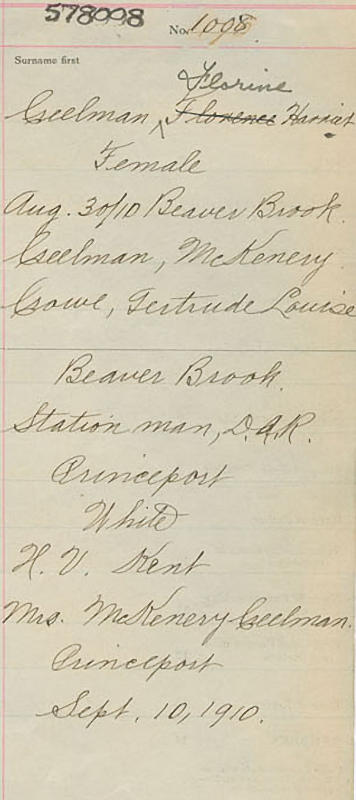 578098
No. 1098
Surname first
Florine
Creelman, Florence Harriet
Female
Aug. 30/10 Beaver Brook.
Creelman, McKenery
Crowe, Gertrude Louise
Beaver Brook.
Station man, D.A.R.
Princeport
White
H. V. Kent
Mrs. McKenery Creelman.
Princeport
Sept. 10, 1910.